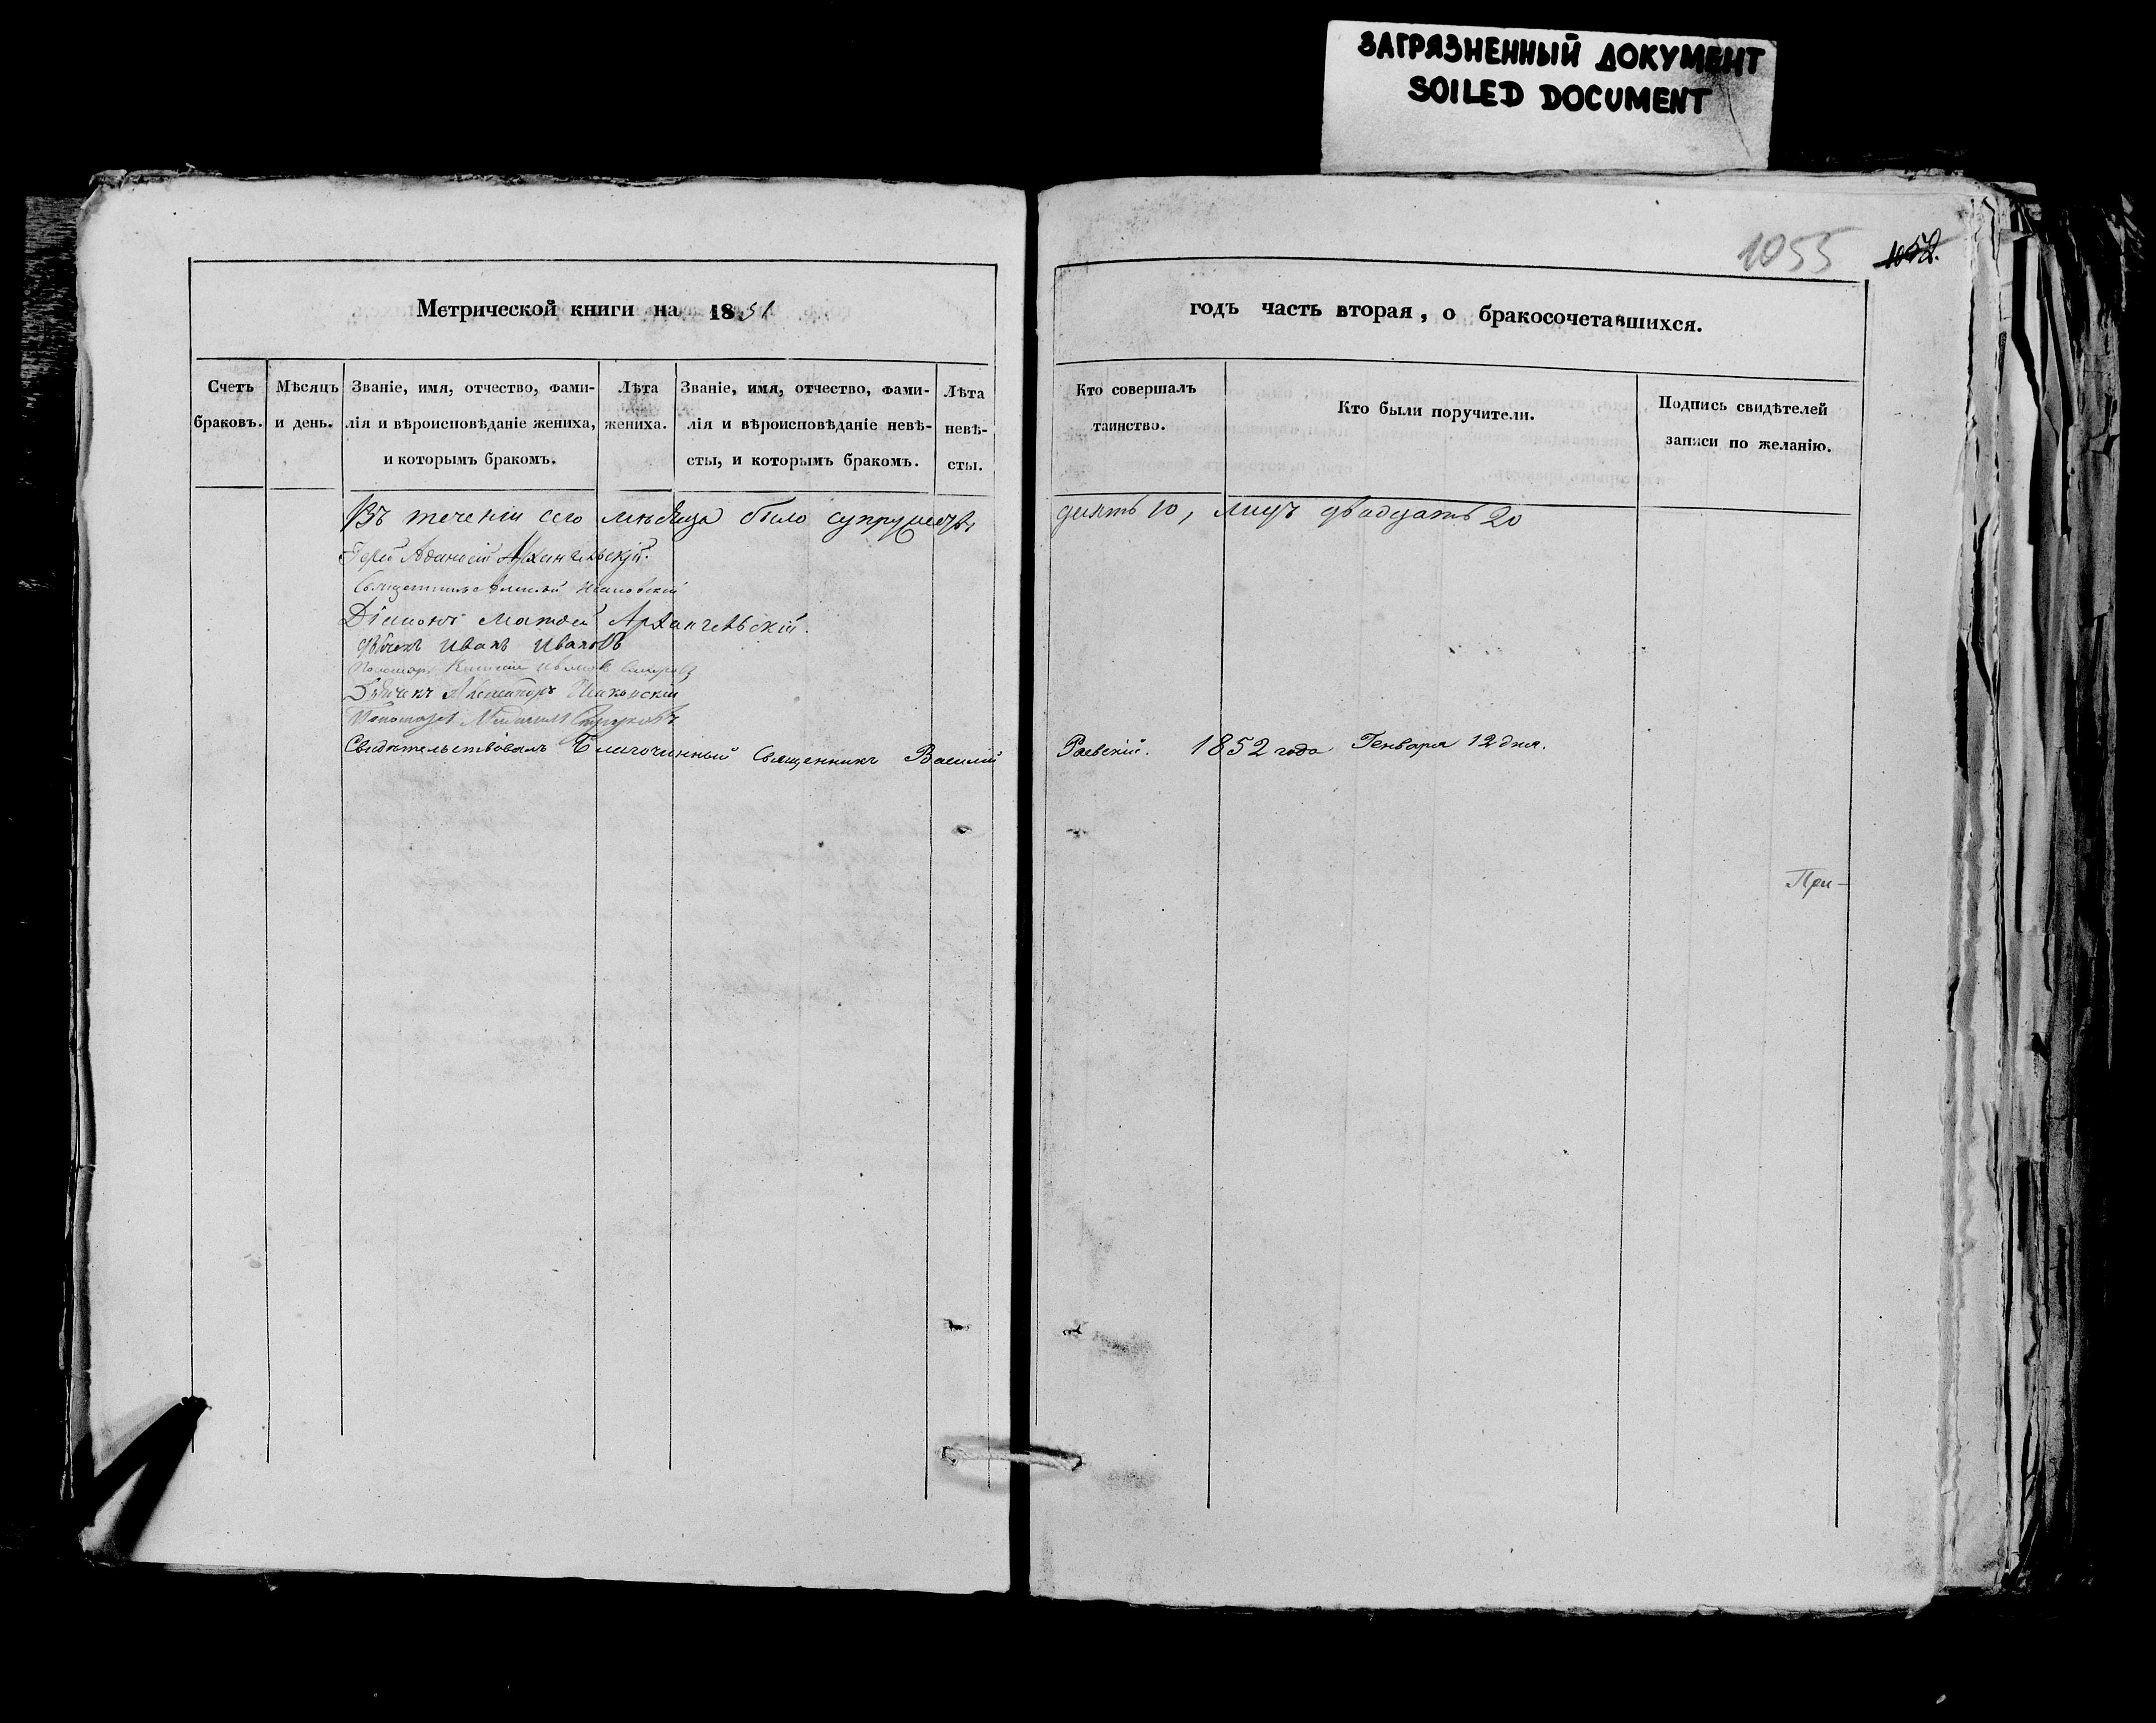 ЗАГРЯЗНЕННЫЙ ДОКУМЕНТ
SOILED DOCUMENT
1055 1052.
Метрической книги на 1851
Счетъ браковъ.
Мѣсяцъ и день.
Званіе, имя, отчество, фами-
лія и вѣроисповѣданіе жениха,
и которымъ бракомъ.
Лѣта
жениха.
Званіе, имя, отчество, фами-
лія и вѣроисповѣданіе невѣ-
сты, и которымъ бракомъ.
Лѣта
невѣ-
сты.
Въ теченіи сего мѣсяца было супружествъ
Іерей Афанасій Архангельскій.
Священникъ Алексѣй
Діаконъ Матфей Архангельскій.
Дьячекъ Иванъ Ивановъ
Пономарь
Дьячекъ Александръ
Пономарь Михаилъ
Свидѣтельствовалъ Благочинный Священникъ Василій
годъ часть вторая, о бракосочетавшихся.
Кто совершалъ
таинство.
Кто были поручители.
Подпись свидѣтелей
записи по желанію.
десять 10, лицъ двадцать 20
Раевскій. 1852 года Генваря 12 дня.
При-